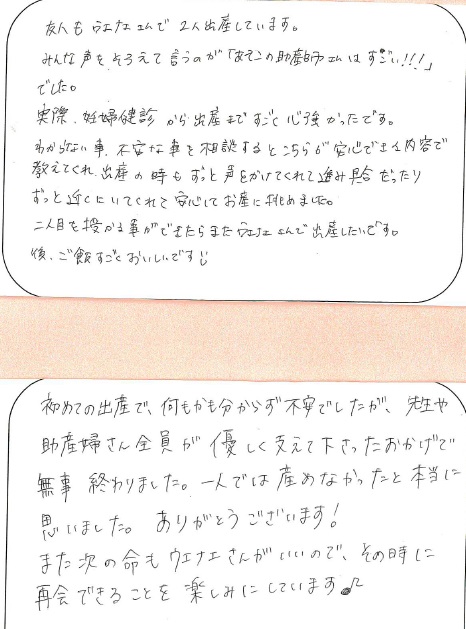 友人もウエナエさんで2人出産しています。
みんな声をそろえて言うのが「あそこの助産師さんはすごい!!!」
でした。
実際、妊婦健診から出産まですごく心強かったです。
わからない事、不安な事を相談するとこちらが安心できる内容で
教えてくれ、出産の時もずっと声をかけてくれて進み具合だったり
ずっと近くにいてくれて安心してお産に挑めました。
二人目を授かる事ができたらまたウエナエさんで出産したいです。
後、ご飯すごくおいしいです
初めての出産で、何もかも分からず不安でしたが、先生や
助産婦さん全員が優しく支えて下さったおかげで
無事終わりました。一人では産めなかったと本当に
思いました。ありがとうございます!
また次の命もウエナエさんがいいので、その時に
再会できることを楽しみにしています♪